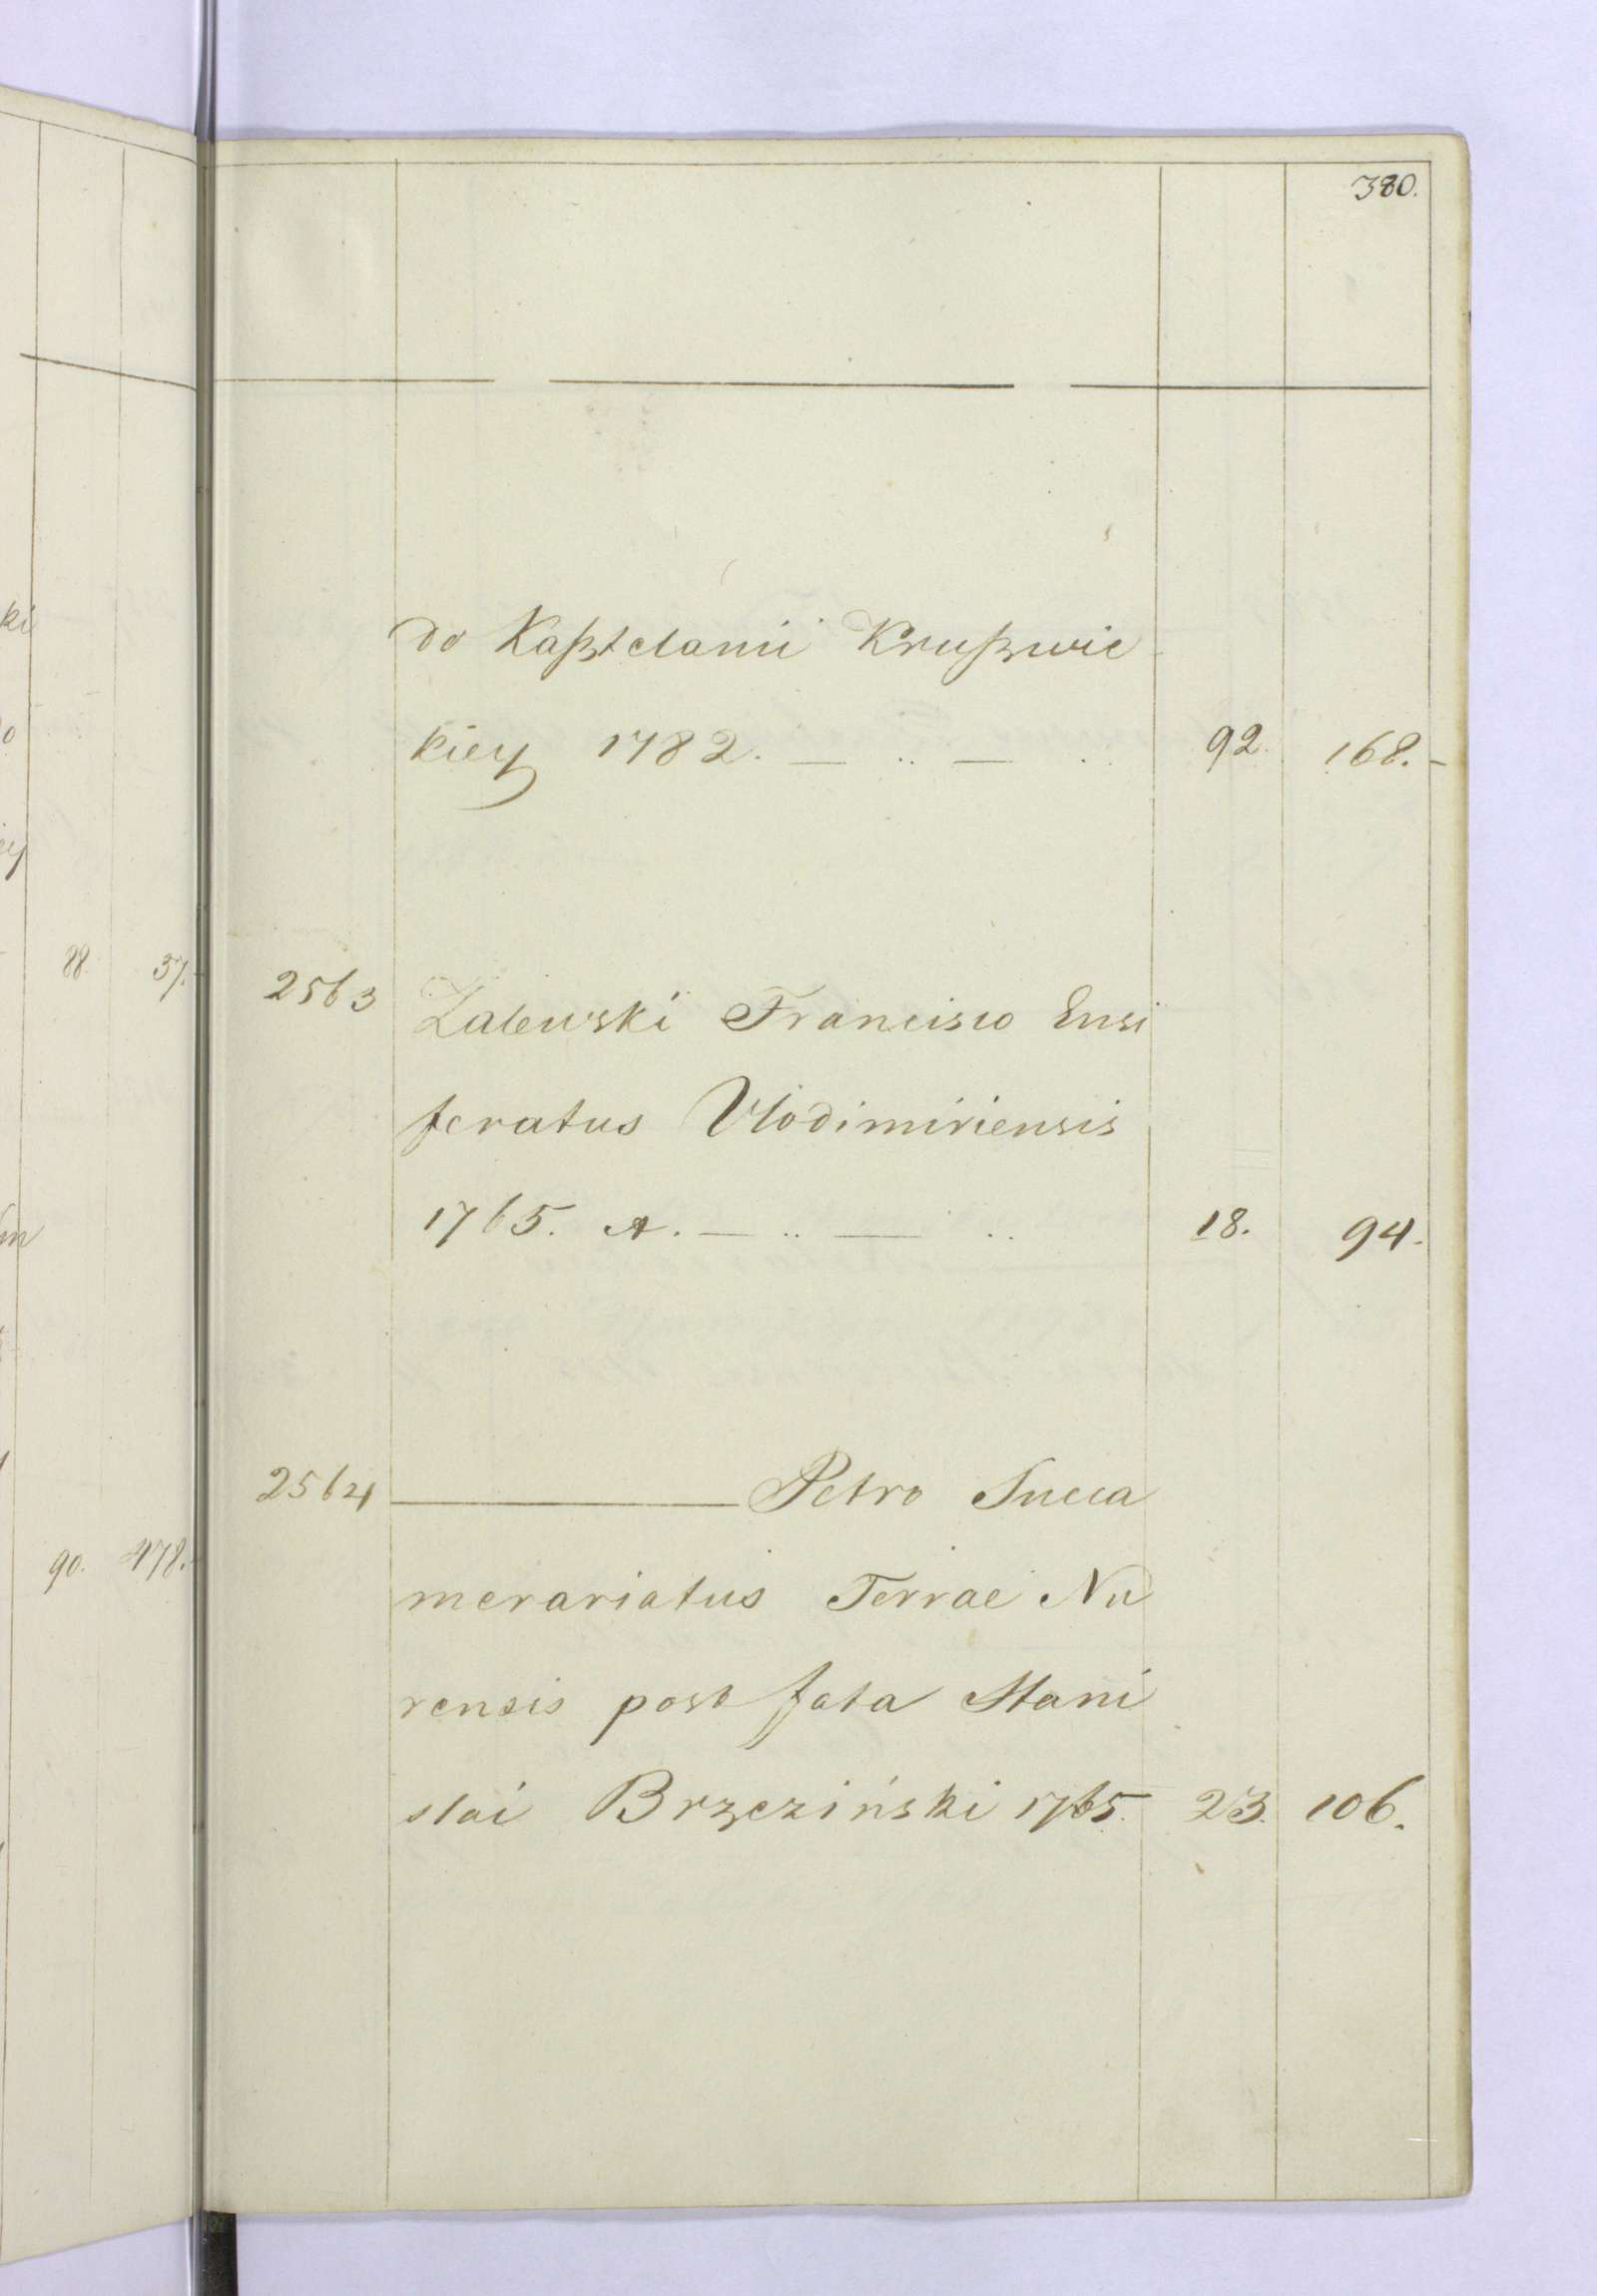 380.
do Kasztelanii Kruszwic
kiey 1782. — .. — .. 92. 168.-
2563 Zalewski Francisco Ensi
feratus Vlodimiriensis
1765. A. — .. — .. 18. 94.
2564 ——— Petro Succa
merariatus Terrae Nu
rensis post fata Stani
slai Brzeziński 1765. 23. 106.
ki
88. 37.
90. 478.